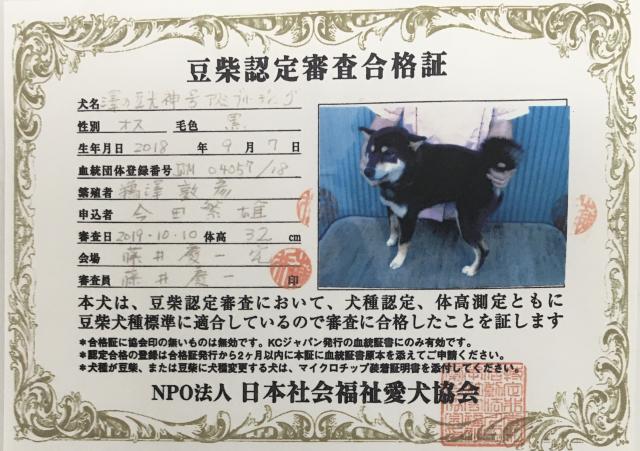 豆柴認定審査合格証
犬名
性別 オス 毛色 黒
生年月日 2018 年 9 月 7 日
血統団体登録番号 04057/18
繁殖者
申込者 今田繁雄
審査日 2019・10・10 体高 32 cm
会場 藤井慶一宅
審査員 藤井慶一 印
本犬は、豆柴認定審査において、犬種認定、体高測定ともに
豆柴犬種標準に適合しているので審査に合格したことを証します
*合格証に協会印の無いものは無効です。KCジャパン発行の血統証書にのみ有効です。
*認定合格の登録は合格証発行から2ヶ月以内に本証に血統証書原本を添えてご申請ください。
*犬種が豆柴、または豆柴に犬種変更する犬は、マイクロチップ装着証明書を添付してください。
NPO法人 日本社会福祉愛犬協会